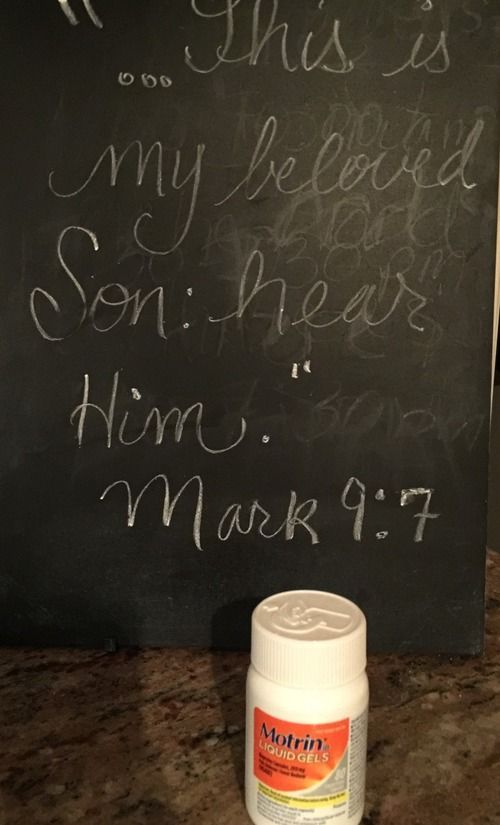 "...This is
my beloved
Son: hear
Him."
Mark 9:7
Motrin
LIQUID GELS